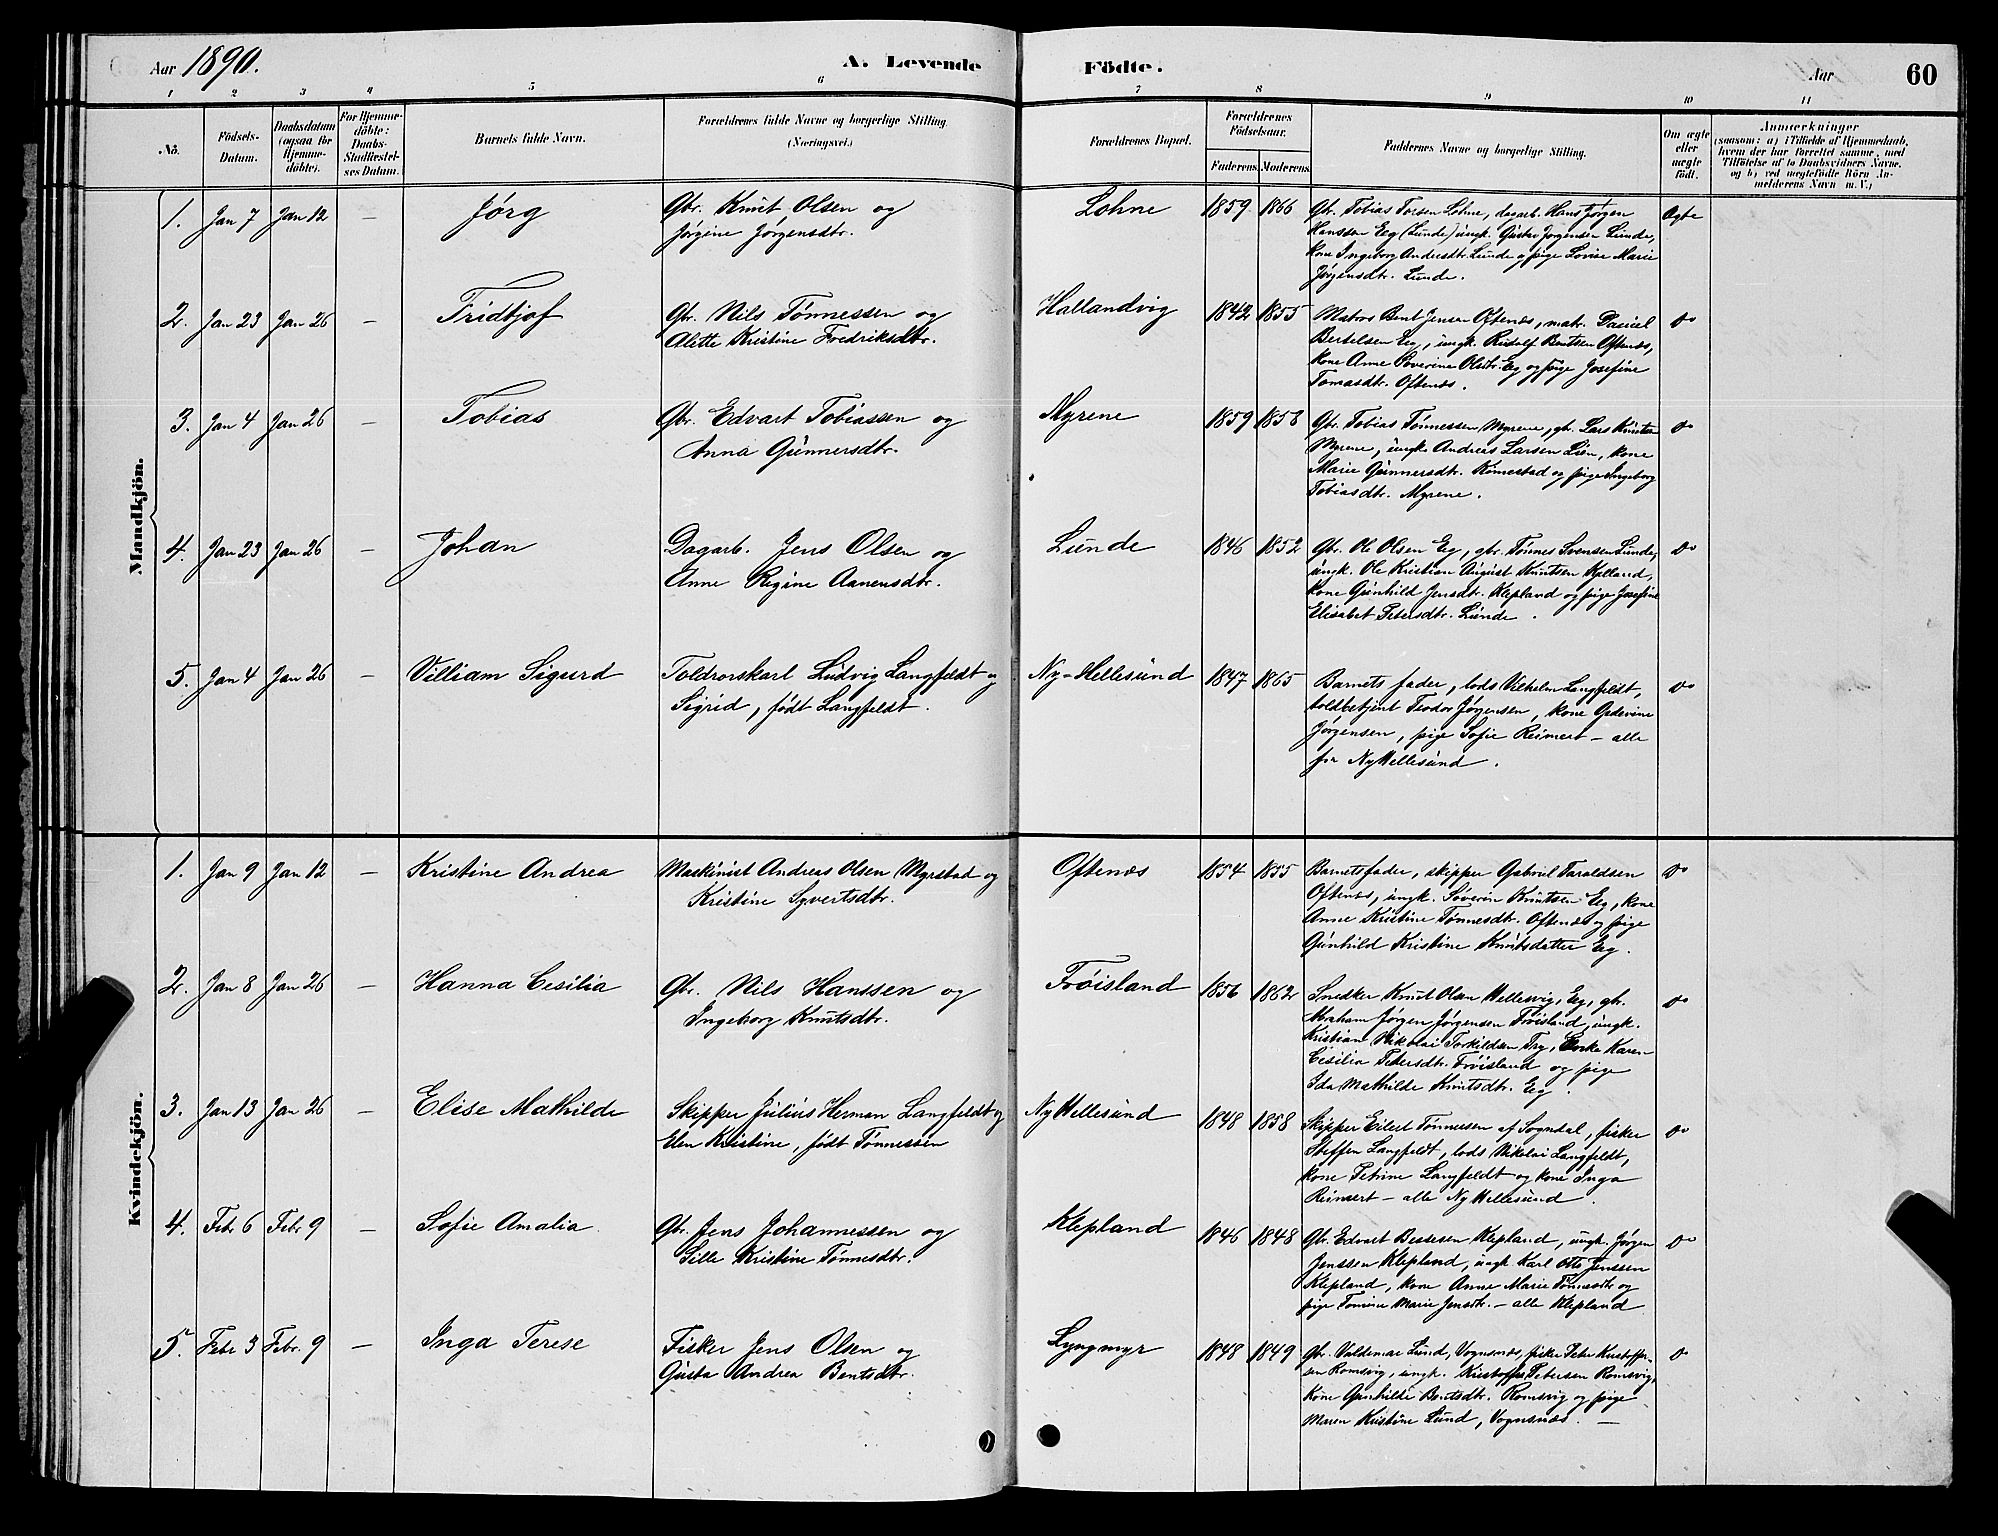 Aar 1890.
A. Levende Födte.
Aar 60
1 2 3 4 5 6 7 8 9 10 11
No.
Födsels-Datum.
Daabsdatum (ogsaa for Hjemme-döbte).
For Hjemme-döbte: Daabs-Stadfæstel-ses Datum.
Barnets fulde Navn.
Forældrenes fulde Navne og borgerlige Stilling. (Næringsvei.)
Forældrenes Bopæl.
Forældrenes Födselsaar.
Faderens. Moderens.
Faddernes Navne og borgerlige Stilling.
Om ægte eller uægte födt.
Anmærkninger
(saasom: a) i Tilfælde af Hjemmedaab, hvem der har forrettet samme, med Tilföielse af to Daabsvidners Navne, og b) ved uægtefödte Börn An-melderens Navn m. V.)
Mandkjön.
1. Jan 7 Jan 12 — Jórg
Gbr. Knut Olsen og
Jórgine Jorgensdtr.
Lohne 1859 1866
Gbr. Tobias Torsen Lohne, dagarb. Hans Jórgen
Hanssen Eeg (Lunde) ungk. Gustav Jorgensen Lunde,
kone Ingeborg Andersdtr. Lunde o pige Lovise Marie
Jórgensdtr. Lunde.
Ægte
2. Jan 23 Jan 26 — Fridtjof
Gbr. Nils Tónnessen og
Alette Kristine Fredriksdtr.
Hallandvig 1842 1855
Matros Bent Jensen Oftenæs, matr. Daniel
Bertelsen Eeg, ungk. Rudolf Bentsen Oftenæs,
kone Anne Severine Olsdtr. Eeg og pige Josefine
Tomasdtr. Oftenæs.
Do
3. Jan 4 Jan 26 — Tobias
Gbr. Edvart Tobiassen og
Anna Gunnersdtr.
Myrene 1859 1858
Gbr. Tobias Tónnessen Myrene, gbr. Lars Knutsen
Myrene, ungk. Andreas Larsen Lien, kone
Marie Gunnersdtr. Rómestad og pige Ingeborg
Tobiasdtr. Myrene.
Do
4. Jan 23 Jan 26 — Johan
Dagarb. Jens Olsen og
Anne Regine Aanensdtr.
Lunde 1846 1852
Gbr. Ole Olsen Eeg, gbr. Tónnes Svensen Lunde,
ungk. Ole Kristian August Knutsen Kalland,
kone Gunhild Jensdtr. Klepland og pige Josefine
Elisabet Petersdtr. Lunde.
Do
5. Jan 4 Jan 26 — Villiam Sigurd
Toldrorskarl Ludvig Langfeldt og
Sigrid, født Langfeldt.
Ny-Hellesund 1847 1865
Barnets fader, lods Vilhelm Langfeldt,
toldbetjent Teodor Jórgensen, kone
Jórgensen, pige Sofie Reimert — alle
fra NyHellesund.
Do
Kvindekjön.
1. Jan 9 Jan 12 — Kristine Andrea
Maskinist Andreas Olsen Myrstad og
Kristine Syvertsdtr.
Oftenæs 1854 1855
Barnetsfader, skipper Gabriel Taraldsen
Oftenæs, ungk. Sóverin Knutsen Eeg, kone
Anne Kristine Tónnesdtr. Oftenæs og pige
Gunhild Kristine Knutsdatter Eeg.
Do
2. Jan 8 Jan 26 — Hanna Cesilia
Gbr. Nils Hanssen og
Ingeborg Knutsdtr.
Fróisland 1856 1862
Snedker Knut Olsen Hellesvig, Eeg, gbr.
Abraham Jórgen Jórgensen Fróisland, ungk.
Kristian Nikolai Torkildsen Try, Enke Karen
Cesilia Petersdtr. Fróisland og pige
Ida Mathilde Knutsdtr. Eeg.
Do
3. Jan 13 Jan 26 — Elise Mathilde
Skipper Julius Herman Langfeldt og
Elen Kristine, født Tónnessen
NyHellesund 1848 1858
Skipper Eilert Tónnessen af Sogndal, fisker
Steffen Langfeldt, lods Nikolai Langfeldt,
kone Petrine Langfeldt og kone Inga
Reimert — alle NyHellesund.
Do
4. Febr 6 Febr 9 — Sofie Amalia
Gbr. Jens Johannessen og
Sille Kristine Tónnesdtr.
Klepland 1846 1848
Gbr. Edvart Bessesen Klepland, ungk. Jórgen
Jenssen Klepland, ungk. Karl Otto Jenssen
Klepland, kone Anne Marie Tomasdtr og
pige Tomine Marie Jensdtr. — alle Klepland
Do
5. Febr 3 Febr. 9 — Inga Terese
Fisker Jens Olsen og
Gusta Andrea Bentsdtr.
Lyngmyr 1848 1849
Gbr. Valdemar Lund, Vognsnæs, fisker Peter Kristoffer-
sen Romsvig, ungk. Kristoffer Petersen Romsvig,
kone Gunhilde Bentsdtr. Romsvig og pige
Maren Kristine Lund, Vognsnæs. —
Do